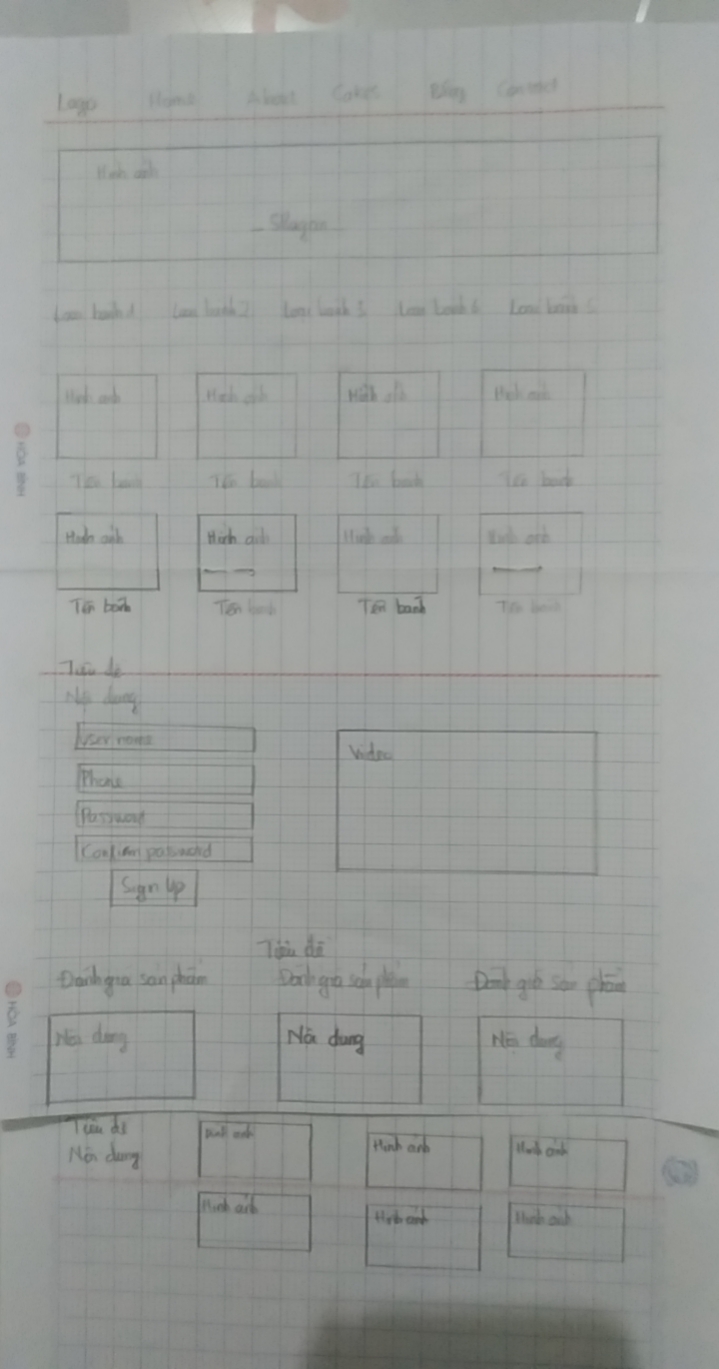 Logo Home About Cakes Blog Contact
Hình ảnh
Slogan
Loại bánh 1 Loại bánh 2 Loại bánh 3 Loại bánh 4 Loại bánh 5
Hình ảnh Hình ảnh Hình ảnh Hình ảnh
Tên bánh Tên bánh Tên bánh Tên bánh
Hình ảnh Hình ảnh Hình ảnh Hình ảnh
Tên bánh Tên bánh Tên bánh Tên bánh
Tiêu đề
Nội dung
User name
Video
Phone
Password
Confirm password
Sign Up
Tiêu đề
Đánh giá sản phẩm Đánh giá sản phẩm Đánh giá sản phẩm
Nội dung Nội dung Nội dung
Tiêu đề Hình ảnh Hình ảnh Hình ảnh
Nội dung
Hình ảnh Hình ảnh Hình ảnh
HÒA BÌNH
HÒA BÌNH